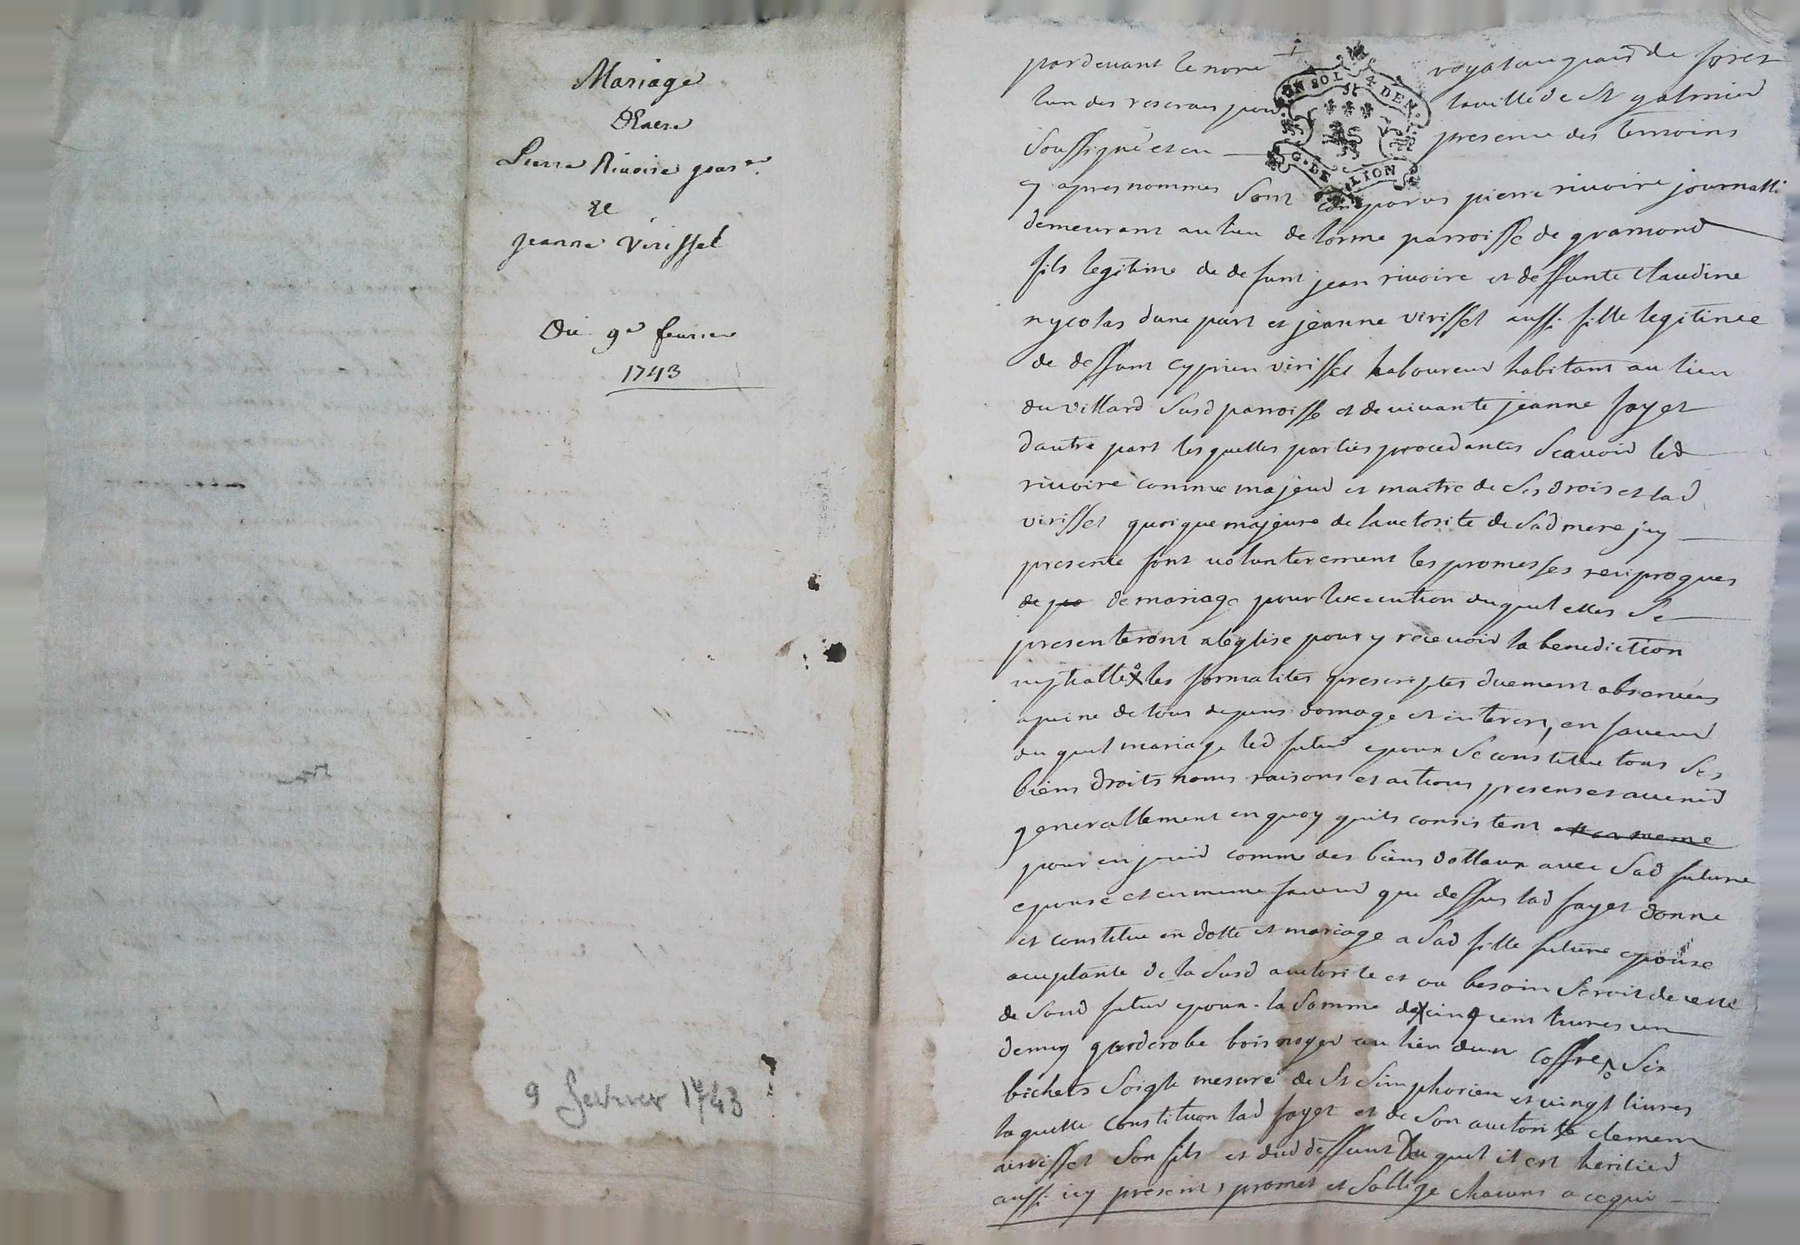 Mariage
Entre
Pierre Riuoire
Et
jeanne Virissel
Du 9e feurier
1743
9 fevrier 1743
pardeuant le notre royal au païs de forez
lun des reserués pour la ville de St galmier
Soussigné et en presence des temoins
cy apres nommes Sont comparus pierre riuoire journalli
demeurant au lieu de lorme parroisse de gramond
fils legitime de defunt jean riuoire et deffunte Claudine
nycolas dune part et jeanne virissel aussi fille legitime
de deffunt cyprien virissel laboureur habitant au lieu
du villard Susd parroisse et de viuante jeanne fayet
dautre part lesquelles parties procedantes Scauoir led
riuoire comme majeur et maitre de Ses drois et lad
virissel quoique majeure de lauctorité de Sad mere jcy
presente font uolunterement les promesses reciproques
de mariage pour lexecution duquel elles Se
presenteront a léglise pour y receuoir la benediction
nuptialle les formalités prescriptes duement obseruées
a peine de tous depens domage et interets, en faueur
du quel mariage led futur epoux Se constitue tous Ses
biens droits noms raisons et actions presens et auenir
generallement en quoy quils consistent et en meme
pour en jouir comme des biens dottaux avec Sad future
epouse et en meme faueur que dessus lad fayet donne
et constitue en dotte et mariage a Sad fille future epouse
acceptante de la Susd auctorité et ou besoin Seroit de celle
de Sond futur epoux la Somme de cinq cens liures un
demy garderobe bois noyer au lieu dun coffre Six
bichets Soigle mesure de St Simphorien et vingt liures
laquelle constitution lad fayet et de Son auctorité clement
virissel Son fils et dud deffunt du quel il est heritier
aussi icy present, promet et Soblige chacuns a ce qui
ON SOL 4 DEN.
G. DE LION